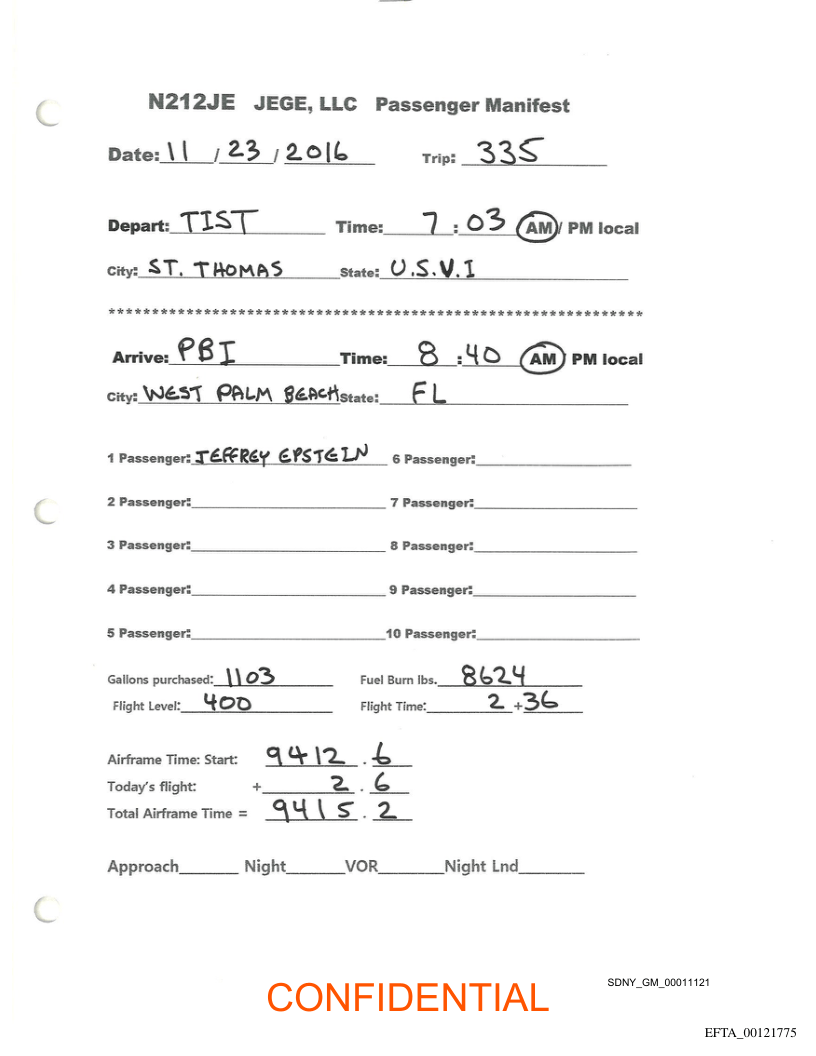 N212JE JEGE, LLC Passenger Manifest
Date: 11 / 23 / 2016 Trip: 335
Depart: TIST Time: 7 : 03 AM/ PM local
City: ST. THOMAS State: U.S.V.I
****************************************************************
Arrive: PBI Time: 8 :40 AM/ PM local
City: WEST PALM BEACH State: FL
1 Passenger: JEFFREY EPSTEIN 6 Passenger:
2 Passenger: 7 Passenger:
3 Passenger: 8 Passenger:
4 Passenger: 9 Passenger:
5 Passenger: 10 Passenger:
Gallons purchased: 1103 Fuel Burn lbs. 8624
Flight Level: 400 Flight Time: 2 +36
Airframe Time: Start: 9412 . 6
Today's flight: + 2 . 6
Total Airframe Time = 9415 . 2
Approach______ Night______VOR______Night Lnd______
SDNY_GM_00011121
CONFIDENTIAL
EFTA_00121775